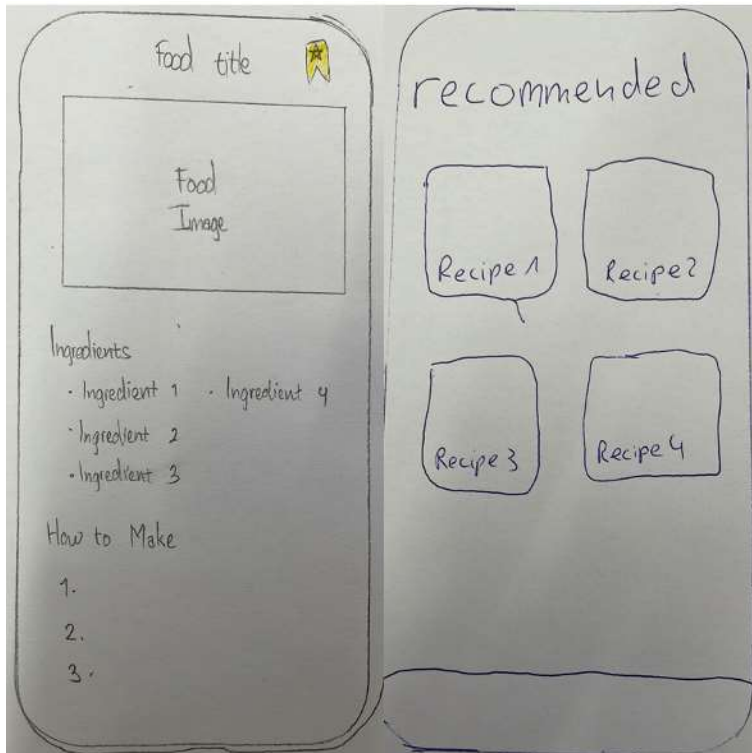 Food title
Food
Image
Ingredients
· Ingredient 1 · Ingredient 4
· Ingredient 2
· Ingredient 3
How to Make
1.
2.
3.
recommended
Recipe 1 Recipe 2
Recipe 3 Recipe 4